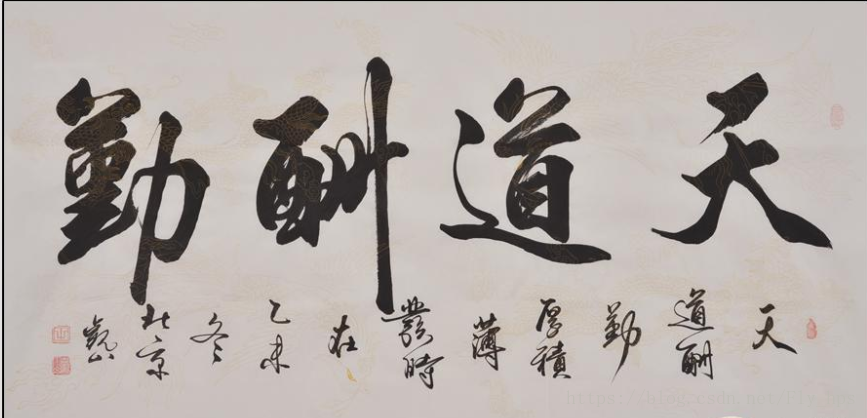 天道酬勤
天道酬勤厚積薄發時在乙未冬北京
https://blog.csdn.net/